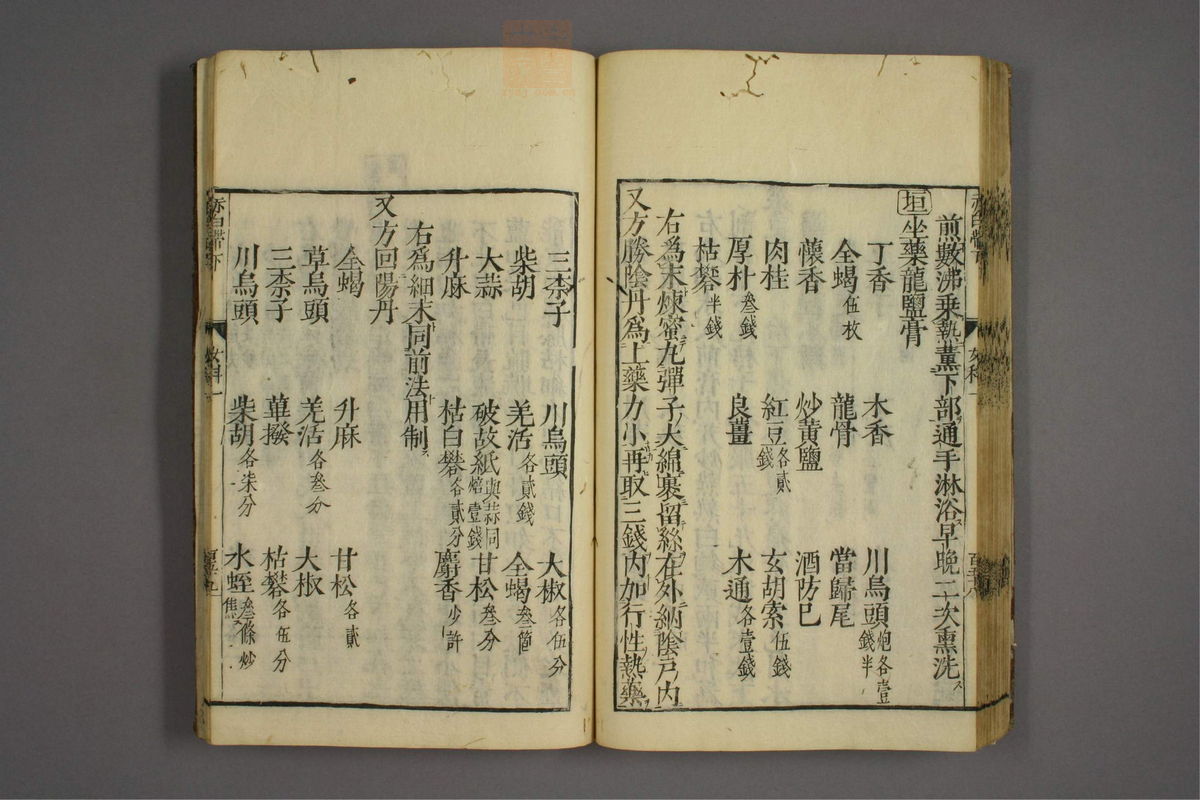 前數沸乘熱薰下部通手淋浴早晚二次熏洗
垣坐藥龍鹽膏
丁香 木香 川烏頭炮各壹錢半
全蝎伍枚 龍骨 當歸尾
懷香 炒黃鹽 酒防巳
肉桂 紅豆各貳錢 玄胡索伍錢
厚朴叁錢 良薑 木通各壹錢
枯礬半錢
右爲末煉蜜丸彈子大綿裹留絲在外納陰戶内
又方勝陰丹爲上藥力小再取三錢内加行性熱藥
赤白帶下 女科一
三柰子 川烏頭 大椒各伍分
柴胡 羌活各貳錢 全蝎叁箇
大蒜 破故紙與蒜同焙壹錢 甘松叁分
升麻 枯白礬各貳分 麝香少許
右爲細末同前法用制
又方回陽丹
全蝎 升麻 甘松各貳
草烏頭 羌活各叁分 大椒
三柰子 蓽撥 枯礬各伍分
川烏頭 柴胡各柒分 水蛭叁條炒焦
赤白帶下 女科一